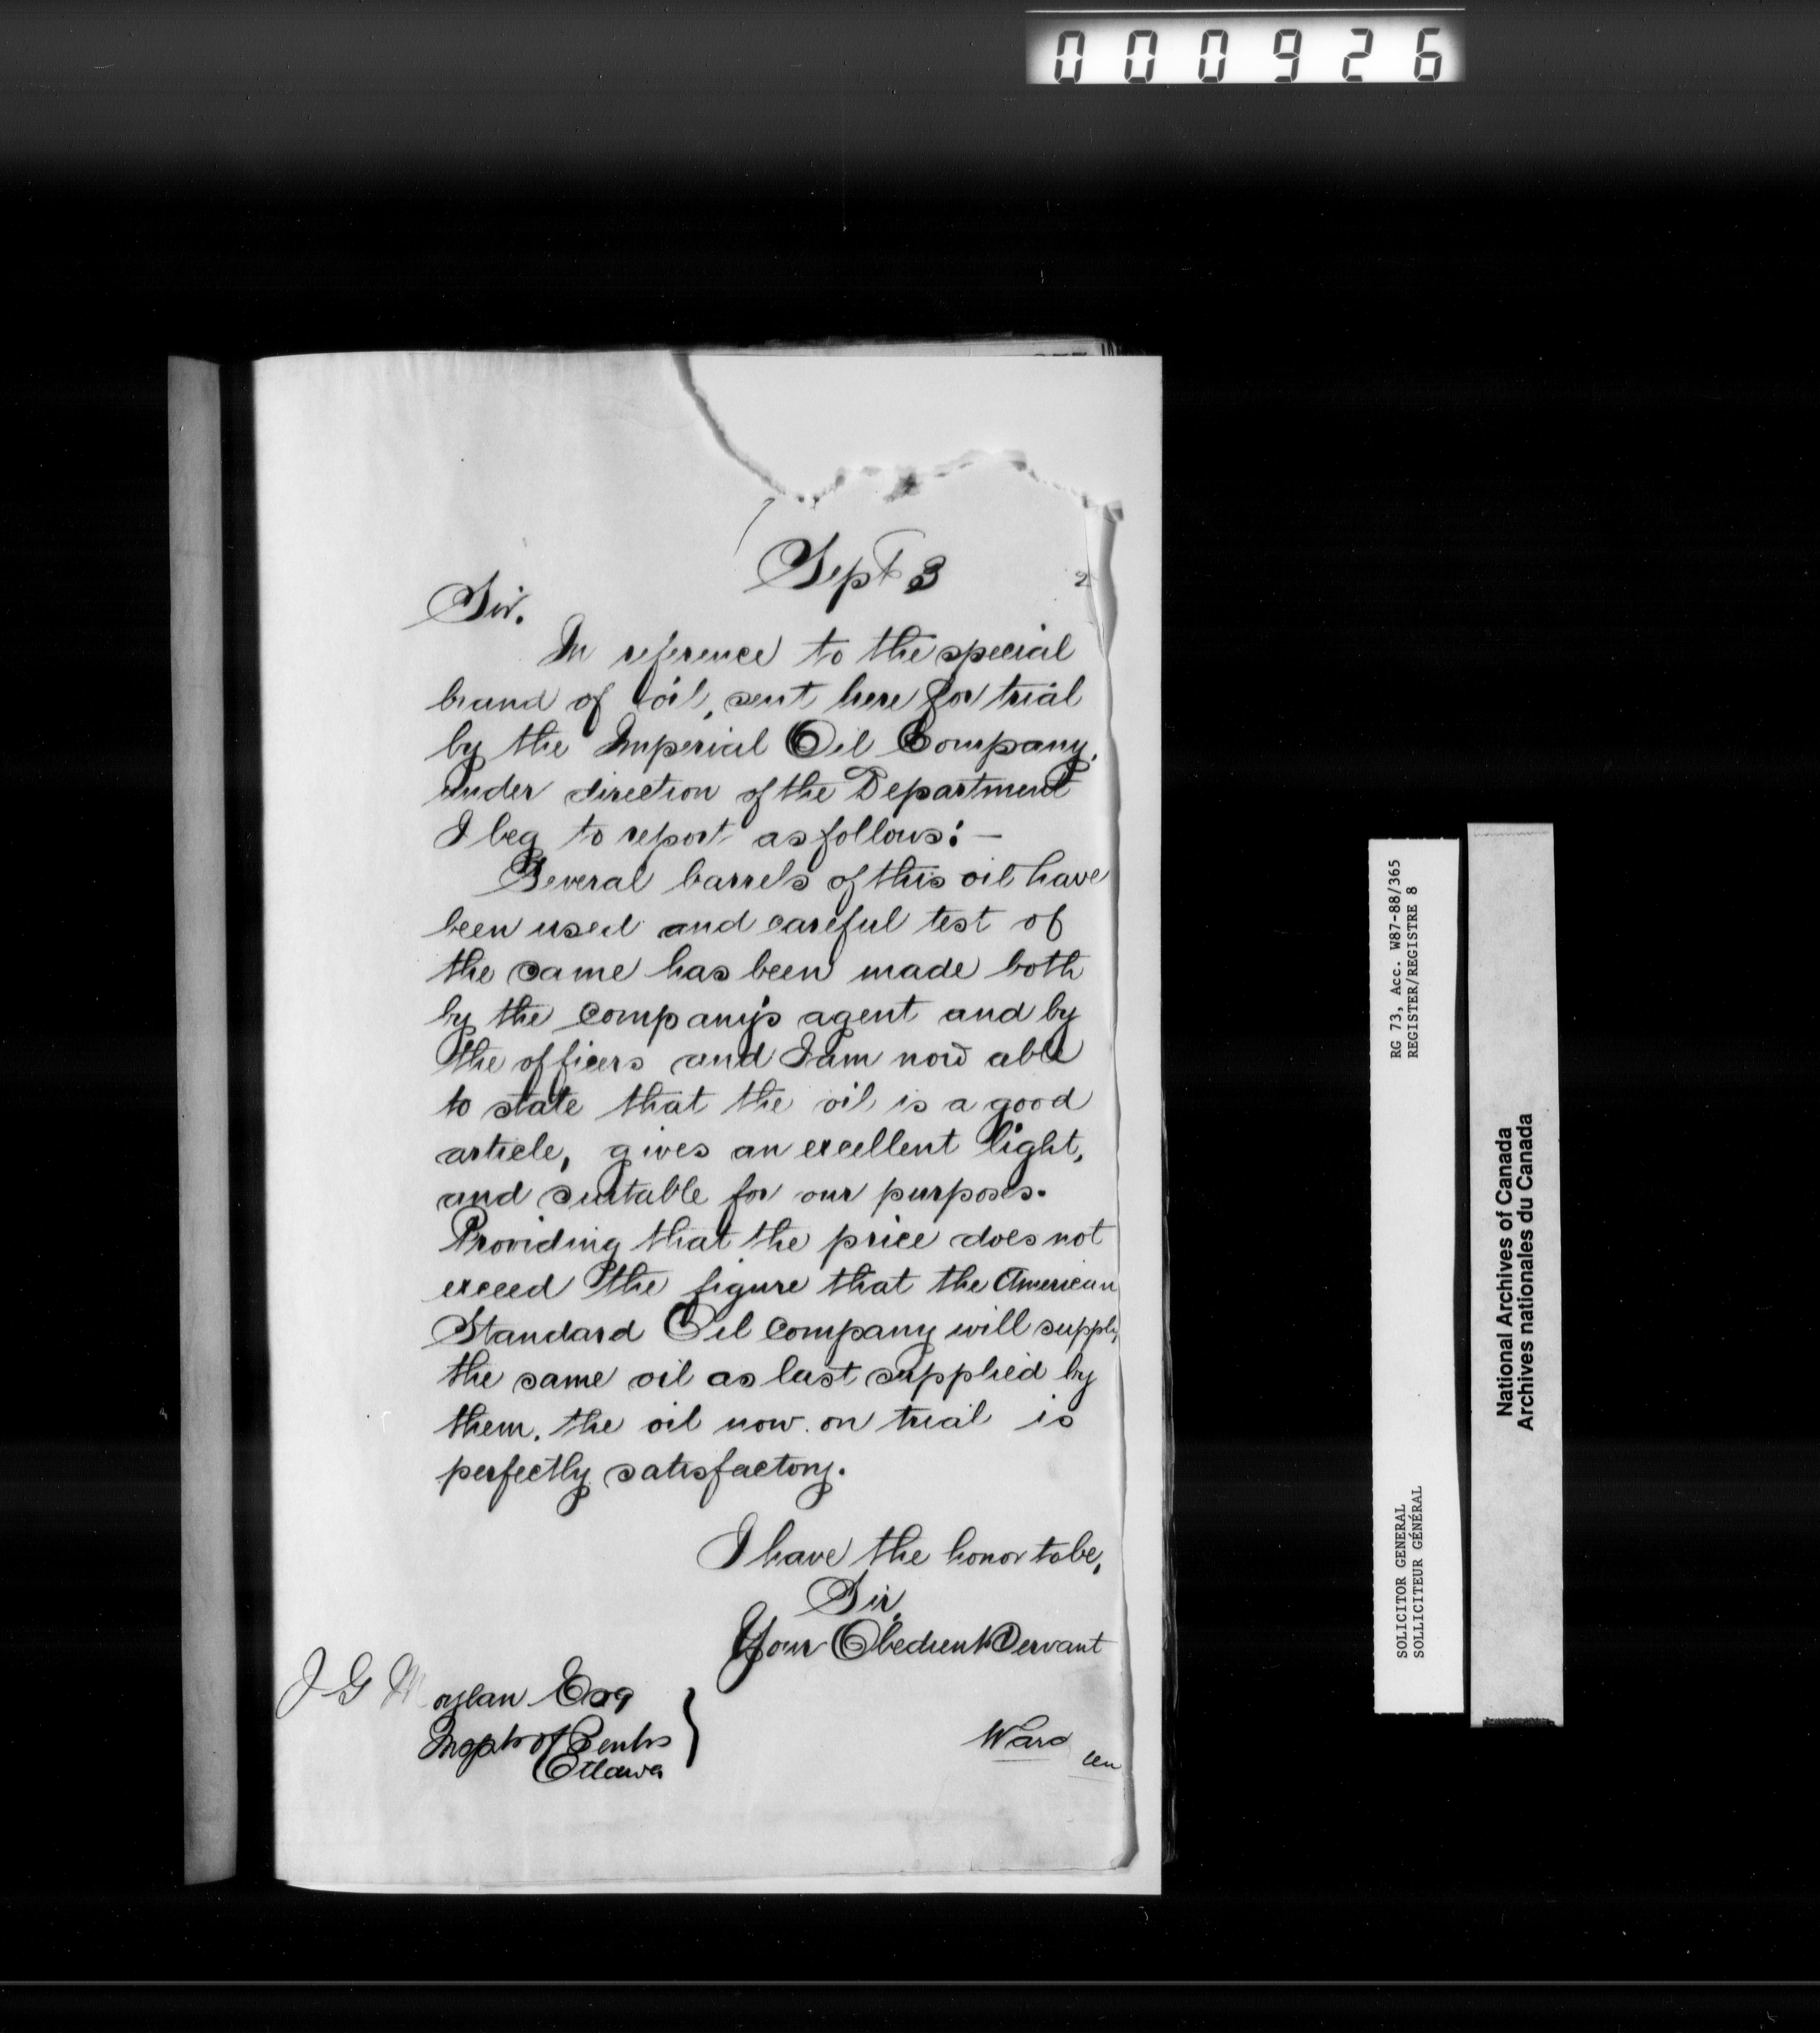 000926
Sept 3 2
Sir.
In reference to the special
brand of oil, sent here for trial
by the Imperial Oil Company,
under direction of the Department
I beg to report as follows:—
Several barrels of this oil have
been used and careful test of
the same has been made both
by the company's agent and by
the officers and I am now able
to state that the oil is a good
article, gives an excellent light,
and suitable for our purposes.
Providing that the price does not
exceed the figure that the American
Standard Oil Company will supply
the same oil as last supplied by
them. the oil now on trial is
perfectly satisfactory.
I have the honor to be,
Sir,
Your Obedient Servant
J G Moylan Esq
Inspt of Penits
Ottawa
Warden
RG 73, Acc. W87-88/365
REGISTER/REGISTRE 8
SOLICITOR GENERAL
SOLLICITEUR GÉNÉRAL
National Archives of Canada
Archives nationales du Canada